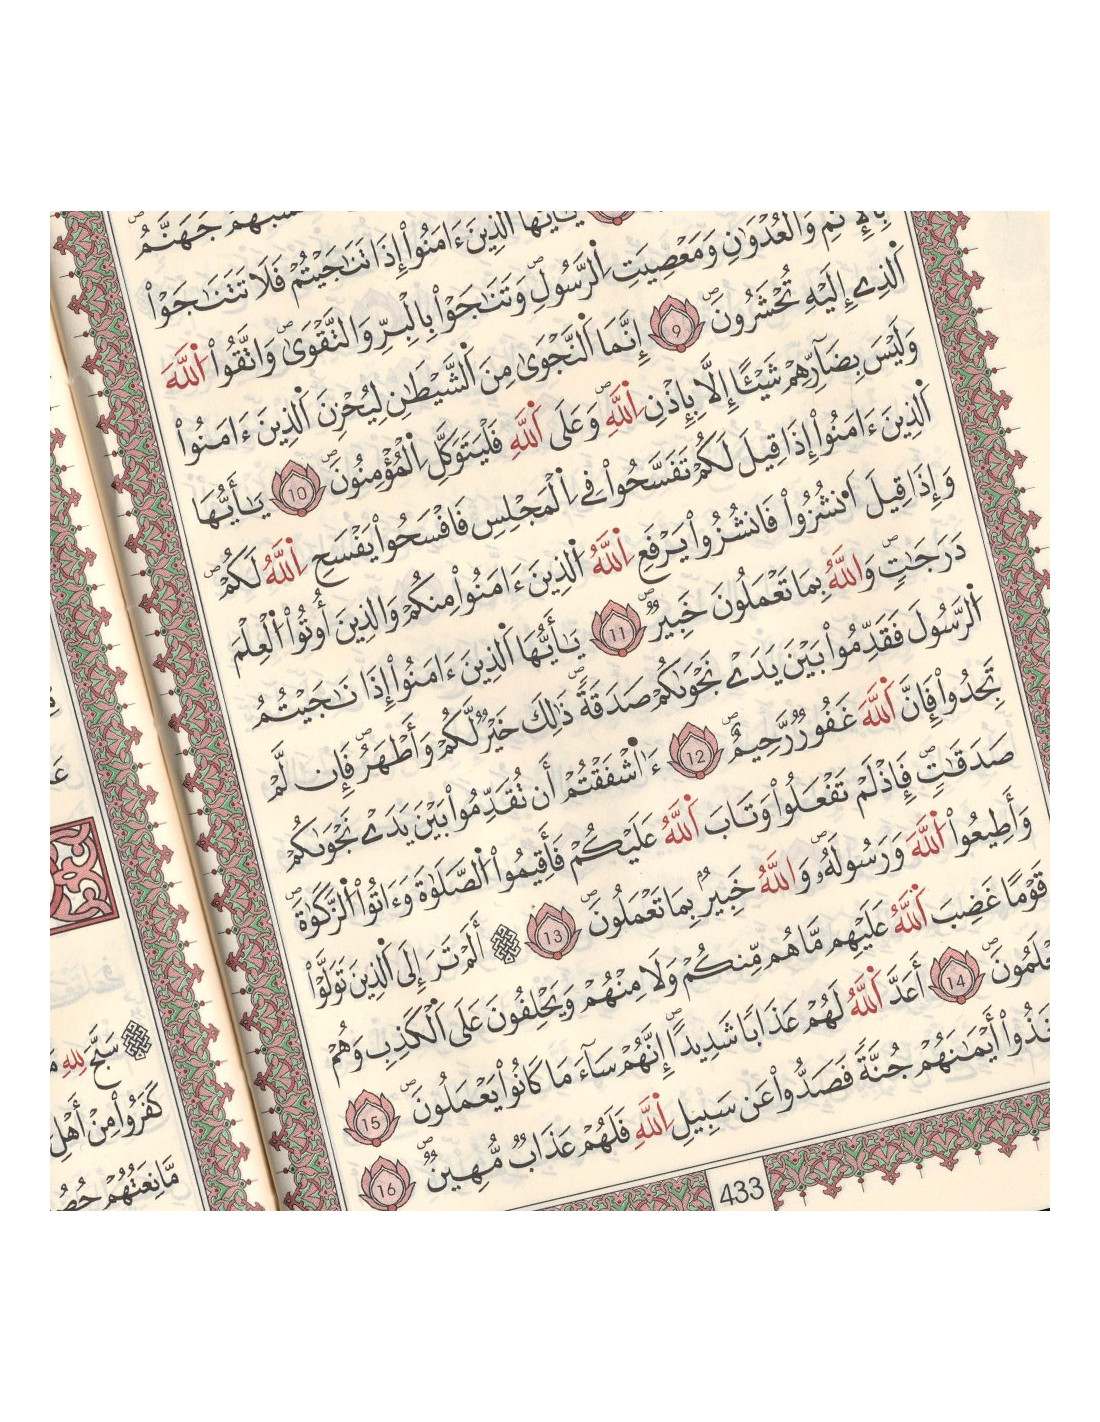 جَهَنَّمُ
يَٰأَيُّهَا اَ۬لذِينَ ءَامَنُوٓاْ إِذَا تَنَٰجَيْتُمْ فَلَا تَتَنَٰجَوْاْ
بِالِاثْمِ وَالْعُدْوَٰنِ وَمَعْصِيَتِ اِ۬لرَّسُولِ وَتَنَٰجَوْاْ بِالْبِرِّ وَالتَّقْوَىٰ وَاتَّقُواْ اُ۬للَّهَ
اَ۬لذِےٓ إِلَيْهِ تُحْشَرُونَ 9 إِنَّمَا اَ۬لنَّجْوَىٰ مِنَ اَ۬لشَّيْطَٰنِ لِيُحْزِنَ اَ۬لذِينَ ءَامَنُواْ
وَلَيْسَ بِضَآرِّهِمْ شَيْـًٔا إِلَّا بِإِذْنِ اِ۬للَّهِ وَعَلَى اَ۬للَّهِ فَلْيَتَوَكَّلِ اِ۬لْمُؤْمِنُونَ 10 يَٰأَيُّهَا
اَ۬لذِينَ ءَامَنُوٓاْ إِذَا قِيلَ لَكُمْ تَفَسَّحُواْ فِے اِ۬لْمَجْلِسِ فَافْسَحُواْ يَفْسَحِ اِ۬للَّهُ لَكُمْ
وَإِذَا قِيلَ اَ۟نشُزُواْ فَانشُزُواْ يَرْفَعِ اِ۬للَّهُ اُ۬لذِينَ ءَامَنُواْ مِنكُمْ وَالذِينَ أُوتُواْ اُ۬لْعِلْمَ
دَرَجَٰتٍ وَاللَّهُ بِمَا تَعْمَلُونَ خَبِيرٌ 11 يَٰأَيُّهَا اَ۬لذِينَ ءَامَنُوٓاْ إِذَا نَٰجَيْتُمُ
اُ۬لرَّسُولَ فَقَدِّمُواْ بَيْنَ يَدَےْ نَجْوَىٰكُمْ صَدَقَةً ذَٰلِكَ خَيْرٌ لَّكُمْ وَأَطْهَرُ فَإِن لَّمْ
تَجِدُواْ فَإِنَّ اَ۬للَّهَ غَفُورٌ رَّحِيمٌ 12 ءَآشْفَقْتُمُۥٓ أَن تُقَدِّمُواْ بَيْنَ يَدَےْ نَجْوَىٰكُمْ
صَدَقَٰتٍ فَإِذْ لَمْ تَفْعَلُواْ وَتَابَ اَ۬للَّهُ عَلَيْكُمْ فَأَقِيمُواْ اُ۬لصَّلَوٰةَ وَءَاتُواْ اُ۬لزَّكَوٰةَ
وَأَطِيعُواْ اُ۬للَّهَ وَرَسُولَهُۥ وَاللَّهُ خَبِيرٌ بِمَا تَعْمَلُونَ 13 أَلَمْ تَرَ إِلَى اَ۬لذِينَ تَوَلَّوْاْ
قَوْمًا غَضِبَ اَ۬للَّهُ عَلَيْهِم مَّا هُم مِّنكُمْ وَلَا مِنْهُمْ وَيَحْلِفُونَ عَلَى اَ۬لْكَذِبِ وَهُمْ
يَعْلَمُونَ 14 أَعَدَّ اَ۬للَّهُ لَهُمْ عَذَابًا شَدِيدًا إِنَّهُمْ سَآءَ مَا كَانُواْ يَعْمَلُونَ 15
أَيْمَٰنَهُمْ جُنَّةً فَصَدُّواْ عَن سَبِيلِ اِ۬للَّهِ فَلَهُمْ عَذَابٌ مُّهِينٌ 16
433
سَبَّحَ لِلهِ
كَفَرُواْ مِنْ أَهْلِ
مَّانِعَتُهُمْ